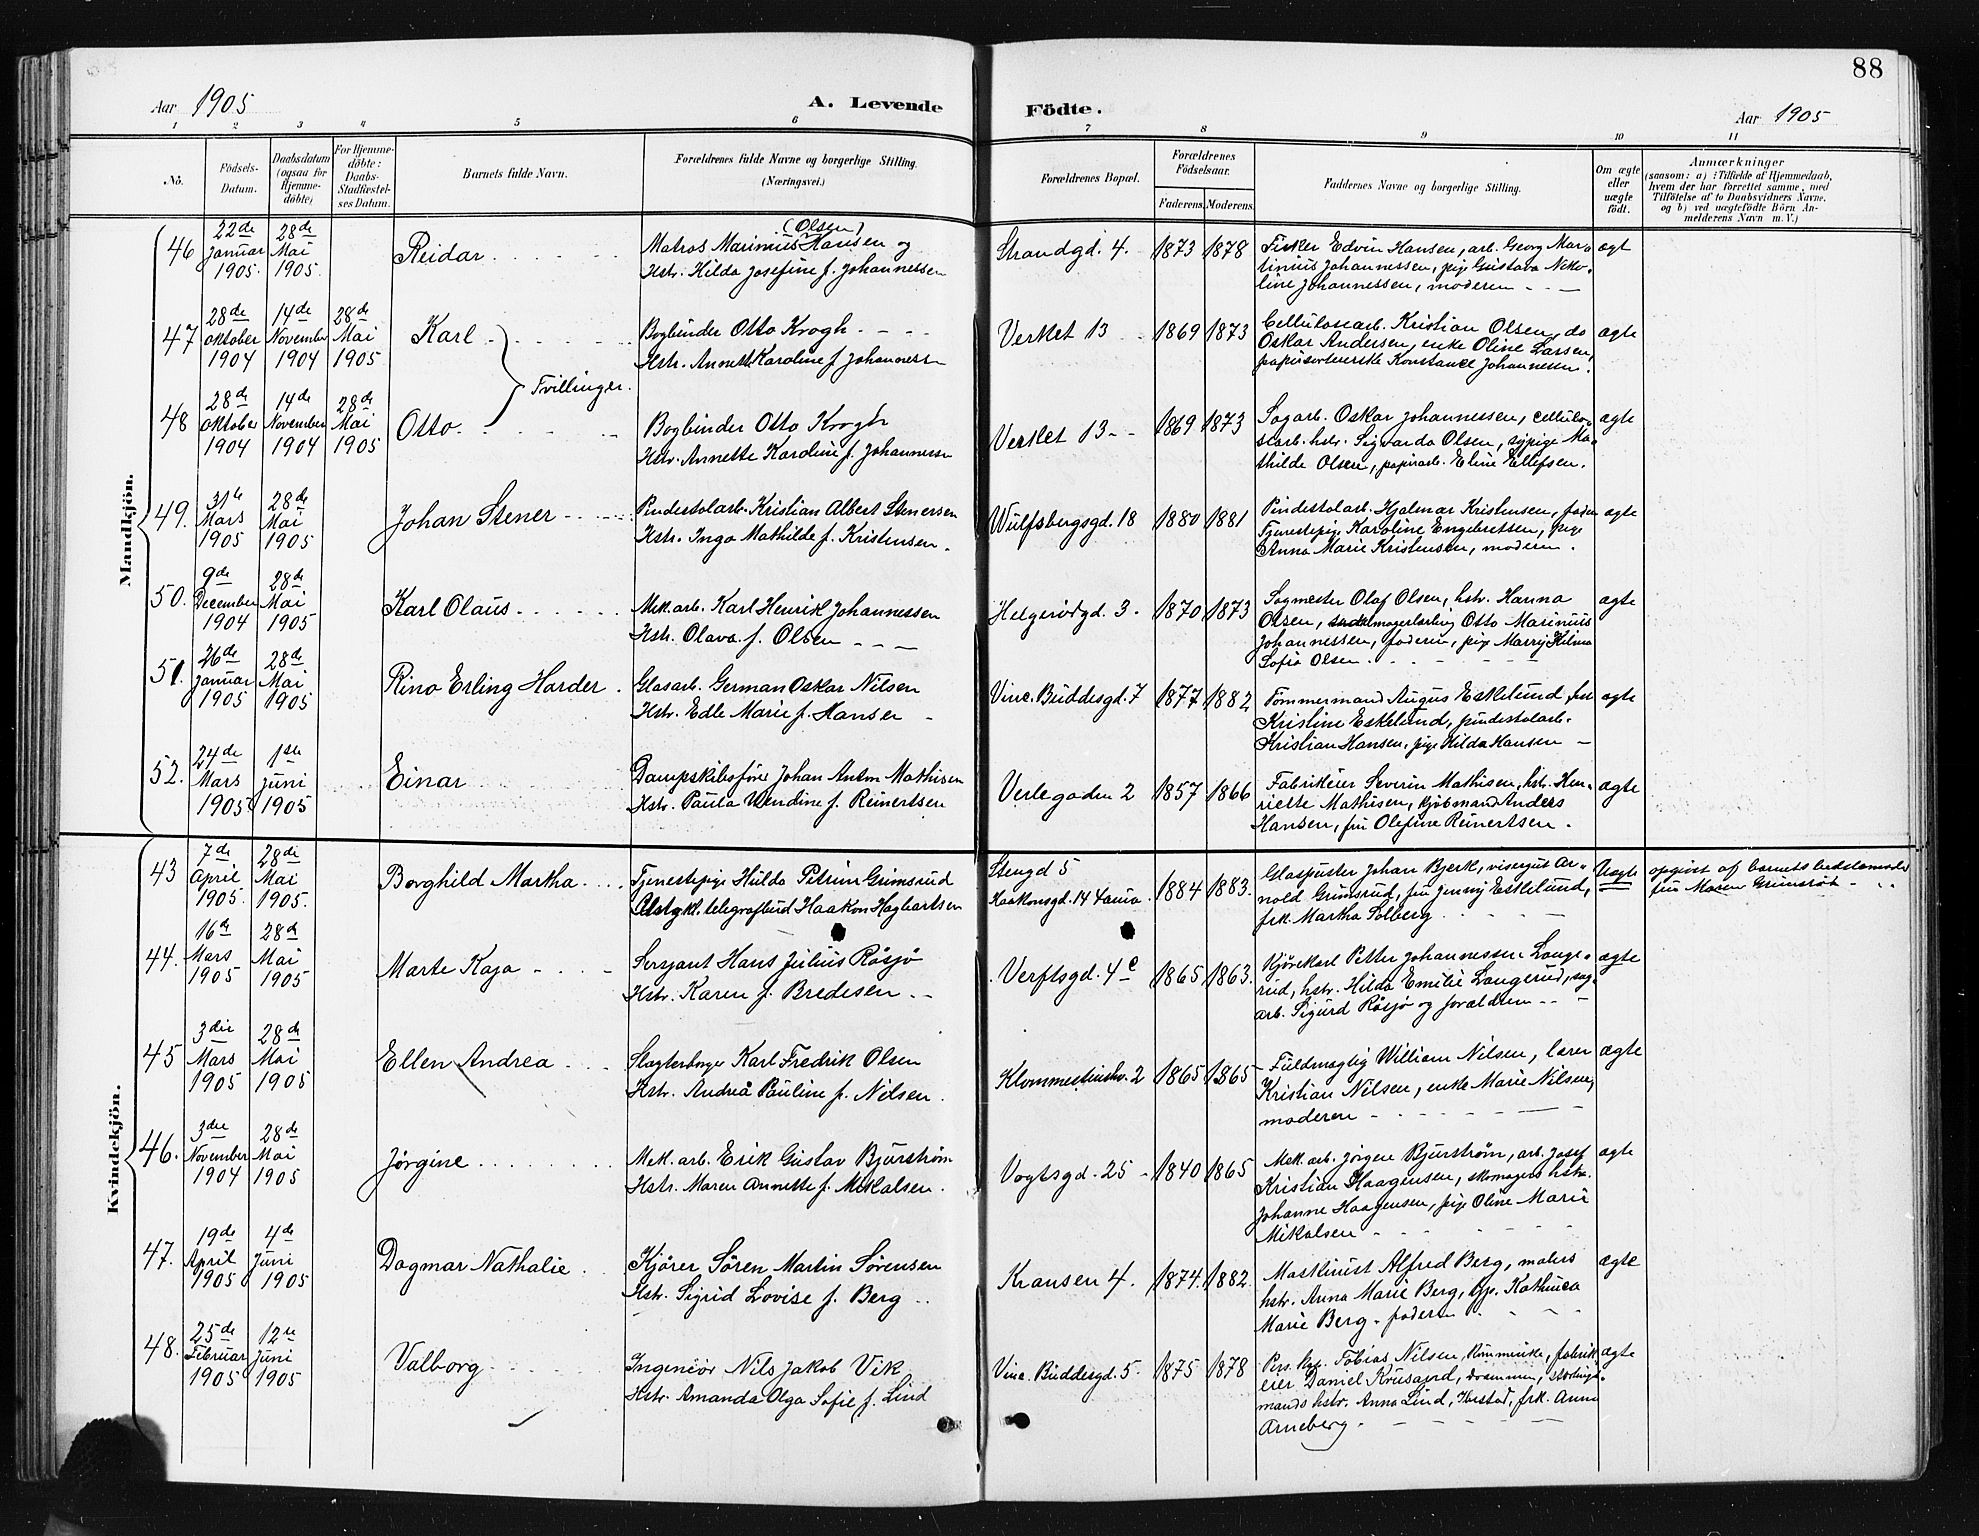 88
Aar 1905
A. Levende Födte.
Aar 1905
1 2 3 4 5 6 7 8 9 10 11
No.
Födsels-
Datum.
Daabsdatum
(ogsaa for
Hjemme-
döbte)
For Hjemme-
döbte:
Daabs-
Stadfæstel-
ses Datum.
Barnets fulde Navn.
Forældrenes fulde Navne og borgerlige Stilling.
(Næringsvei.)
Forældrenes Bopæl.
Forældrenes
Födselsaar.
Faderens. Moderens.
Faddernes Navne og borgerlige Stilling.
Om ægte
eller
uægte
födt.
Anmærkninger
(saasom: a) i Tilfælde af Hjemmedaab,
hvem der har forrettet samme, med
Tilföielse af to Daabsvidners Navne.
og b) ved uægtefödte Börn An-
melderens Navn m. V.)
Mandkjön.
46
22de
Januar
1905.
28de
Mai
1905.
Reidar
(Olsen)
Matros Marinius Hansen og
Hstr. Hilda Josefine f. Johannessen
Strandgd. 4.
1873 1878
Fisker Edvin Hansen, arb. Georg Mar-
tinius Johannessen, pige Gustava Niko-
line Johannessen, moderen
ægt
47
28de
oktober
1904
14de
November
1904
28de
Mai
1905
Karl
Tvillinger.
Bogbinder Otto Krogh
Hstr. Annette Karoline f. Johannessn
Verket 13
1869 1873
Cellulosearb. Kristian Olsen, do
Oskar Andersen, enke Oline Larsen,
papirsortererske Konstance Johannessen.
ægte
48
28de
oktober
1904
14de
November
1904
28de
Mai
1905
Otto
Bogbinder Otto Krogh
Hstr. Annette Karoline f. Johannessn
Verket 13
1869 1873
Sagarb. Oskar Johannessen, cellulo-
searb. hstr. Sigvarda Olsen, sypige Ma-
thilde Olsen, papirarb. Eline Ellefsen.
ægte
49.
31te
Mars
1905
28de
Mai
1905
Johan Stener
Pindestolarb. Kristian Albert Stenersen
Hstr. Inga Mathilde f. Kristensen.
Wulfsbergsgd. 18
1880 1881
Pindestolarb. Hjalmar Kristensen, faderen
Tjenestepig. Karoline Engebretsen, pige
Anna Marie Kristensen, moderen.
ægte
50.
9de
December
1904
28de
Mai
1905
Karl Olaus
Mek. arb. Karl Henrik Johannessen
Hstr. Olava f. Olsen
Helgerødgd. 3.
1870 1873
Sagmester Olaf Olsen, hstr. Hanna
Olsen, Otto Marinius
Johannessen, faderen, pige Marry Hilma
Sofia Olsen.
ægte
51.
26de
Januar
1905
28de
Mai
1905
Rino Erling Harder.
Glasarb. German Oskar Nilsen
Hstr. Edle Marie f. Hansen
Vinc. Buddesgd. 7
1877 1882
Tømmermand Augus Eskelund, hst
Kristine Eskelund, pindestolarb.
Kristian Hansen, pige Hilda Hansen
ægte
52.
24de
Mars
1905
1ste
Juni
1905
Einar
Dampskibsfører Johan Anton Mathisen
Hstr. Paula Wendine f. Reinertsen
Verlegaden 2
1857 1866
Fabrikeier Severin Mathisen, hstr. Hen-
riette Mathisen, kjøbmand Anders
Hansen, fru Olefine Reinertsen.
ægte
Kvindekjön.
43
7de
April
1905.
28de
Mai
1905.
Borghild Martha
Tjenestepige Hulda Petrine Grimsrud
Ustgkl. telegrafbud Haakon Hagbartsen
Stengd 5
Haakonsgd. 14
1884 1883.
Glaspuster Johan Bjerk, visergut Ar-
nold Grimsrud, fru Jenny Eskelund,
frk. Martha Solberg
Uægte
opgivet af barnets bedstemoder
fru Maren Grimsrød
44.
16de
Mars
1905
28de
Mai
1905
Marte Kaja
Sersjant Hans Julius Røsjø
Hstr. Karen f. Bredesen
Verftsgd. 4c
1865 1863.
Kjørekarl Petter Johannessen Lange-
rud, hstr. Hilda Emilie Langerud, sag-
arb. Sigurd Røsjø og forældrene
ægte
45
3die
Mars
1905
28de
Mai
1905
Ellen Andrea
Slagterborger Karl Fredrik Olsen
Hstr. Andrea Pauline f. Nilsen.
Klommestinsbv. 2
1865 1865
Fuldmægtig William Nilsen, lærer
Kristian Nilsen, enke Marie Nilsen,
moderen
ægte
46.
3die
November
1904
28de
Mai
1905
Jørgine
Mek. arb. Erik Gustav Bjurstrøm
Hstr. Maren Annette f. Mikalsen.
Vogtsgd. 25
1840 1865
Mek. arb. Jørgen Bjurstrøm, arb. Josef
Kristian Haagensen, skomagers hstr.
Johanne Haagensen, pige Oline Marie
Mikalsen
ægte
47.
19de
April
1905
4de
Juni
1905
Dagmar Nathalie
Kjører Søren Martin Sørensen
Hstr. Sigrid Lovise f. Berg
Kransen 4.
1874. 1882.
Maskinist Alfred Berg, malers
hstr. Anna Marie Berg, Kathinca
Marie Berg, faderen
ægte
48.
25de
Februar
1905
12te
Juni
1905
Valborg
Ingeniør Nils Jakob Vik
Hstr. Amanda Olga Sofie f. Lind
Vinc. Buddesgd. 5.
1875 1878
Tobias Nilsen, fabrik
eier Daniel Krusajord, Drammen,
mands hstr. Anna Lind, Harstad, frk. Anna
Arneberg.
ægte